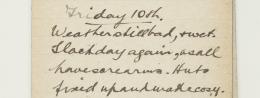 Friday 10th.
Weather still bad, & wet.
Slack day again, as all
have sore arms. Huts
fixed up and made cosy.